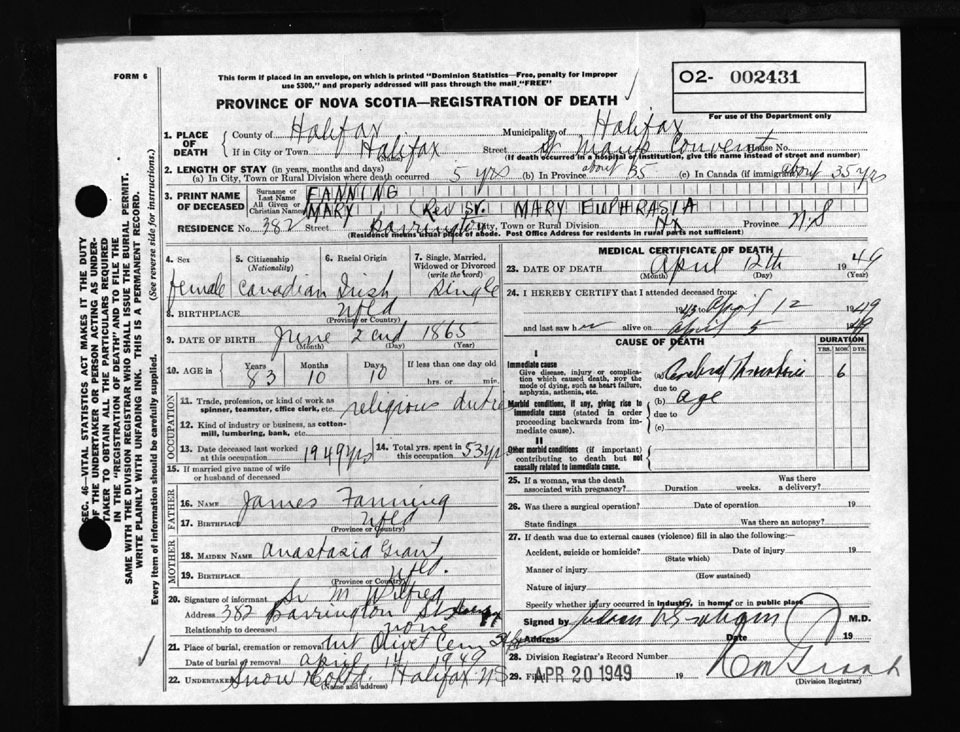 FORM 6
This form if placed in an envelope, on which is printed "Dominion Statistics—Free, penalty for improper
use $300," and properly addressed will pass through the mail "FREE"
O2- 002431
For use of the Department only
PROVINCE OF NOVA SCOTIA—REGISTRATION OF DEATH
1. PLACE OF DEATH { County of Halifax Municipality of Halifax
If in City or Town Halifax (Name) Street St Mary's Convent House No.
(If death occurred in a hospital or institution, give the name instead of street and number)
2. LENGTH OF STAY (in years, months and days)
(a) In City, Town or Rural Division where death occurred 5 yrs (b) In Province about 35 (c) In Canada (if immigrant) about 35 yrs
3. PRINT NAME OF DECEASED { Surname or Last Name FANNING
All Given or Christian Names MARY (Rev Sr. MARY EUPHRASIA
RESIDENCE No. 382 Street Barrington City, Town or Rural Division Hx Province N.S
(Residence means usual place of abode. Post Office Address for residents in rural parts not sufficient)
4. Sex female
5. Citizenship (Nationality) Canadian
6. Racial Origin Irish
7. Single, Married, Widowed or Divorced (write the word) Single
8. BIRTHPLACE Nfld
(Province or Country)
9. DATE OF BIRTH June (Month) 2nd (Day) 1865 (Year)
10. AGE in { Years 83 Months 10 Days 10 If less than one day old hrs. or min.
OCCUPATION
11. Trade, profession or kind of work as spinner, teamster, office clerk, etc. religious duties
12. Kind of industry or business, as cotton-mill, lumbering, bank, etc.
13. Date deceased last worked at this occupation 1949 yrs
14. Total yrs. spent in this occupation 53 yr
15. If married give name of wife or husband of deceased
FATHER
16. NAME James Fanning
17. BIRTHPLACE Nfld
(Province or Country)
MOTHER
18. MAIDEN NAME Anastasia Grant
19. BIRTHPLACE Nfld.
(Province or Country)
20. Signature of informant Sr M Wilfred
Address 382 Barrington St
Relationship to deceased none
21. Place of burial, cremation or removal Mt Olivet Cem
Date of burial or removal April 14 1949
22. UNDERTAKER Snow Co Ltd. Halifax NS
(Name and address)
MEDICAL CERTIFICATE OF DEATH
23. DATE OF DEATH April (Month) 12th (Day) 1949 (Year)
24. I HEREBY CERTIFY that I attended deceased from:
to April 12 1949
and last saw her alive on April 5 1949
CAUSE OF DEATH
DURATION
YRS. MOS. DYS.
I
Immediate cause
Give disease, injury or complication which caused death, NOT the mode of dying, such as heart failure, asphyxia, asthenia, etc.
(a) Cerebral Thrombosis 6
due to
Morbid conditions, if any, giving rise to immediate cause (stated in order proceeding backwards from immediate cause).
(b) age
due to
(c)
II
Other morbid conditions (if important) contributing to death but not causally related to immediate cause.
25. If a woman, was the death associated with pregnancy? Duration weeks. Was there a delivery?
26. Was there a surgical operation? Date of operation 19
State findings Was there an autopsy?
27. If death was due to external causes (violence) fill in also the following:—
Accident, suicide or homicide? (State which) Date of injury 19
Manner of injury
(How sustained)
Nature of injury
Specify whether injury occurred in industry, in home or in public place
Signed by M.D.
Address Date 19
28. Division Registrar's Record Number
29. Filed APR 20 1949 19
(Division Registrar)
SEC. 46—VITAL STATISTICS ACT MAKES IT THE DUTY
OF THE UNDERTAKER OR PERSON ACTING AS UNDER-
TAKER TO OBTAIN ALL THE PARTICULARS REQUIRED
IN THE "REGISTRATION OF DEATH" AND TO FILE THE
SAME WITH THE DIVISION REGISTRAR WHO SHALL ISSUE THE BURIAL PERMIT.
WRITE PLAINLY WITH UNFADING INK. THIS IS A PERMANENT RECORD.
Every item of information should be carefully supplied. (See reverse side for instructions.)